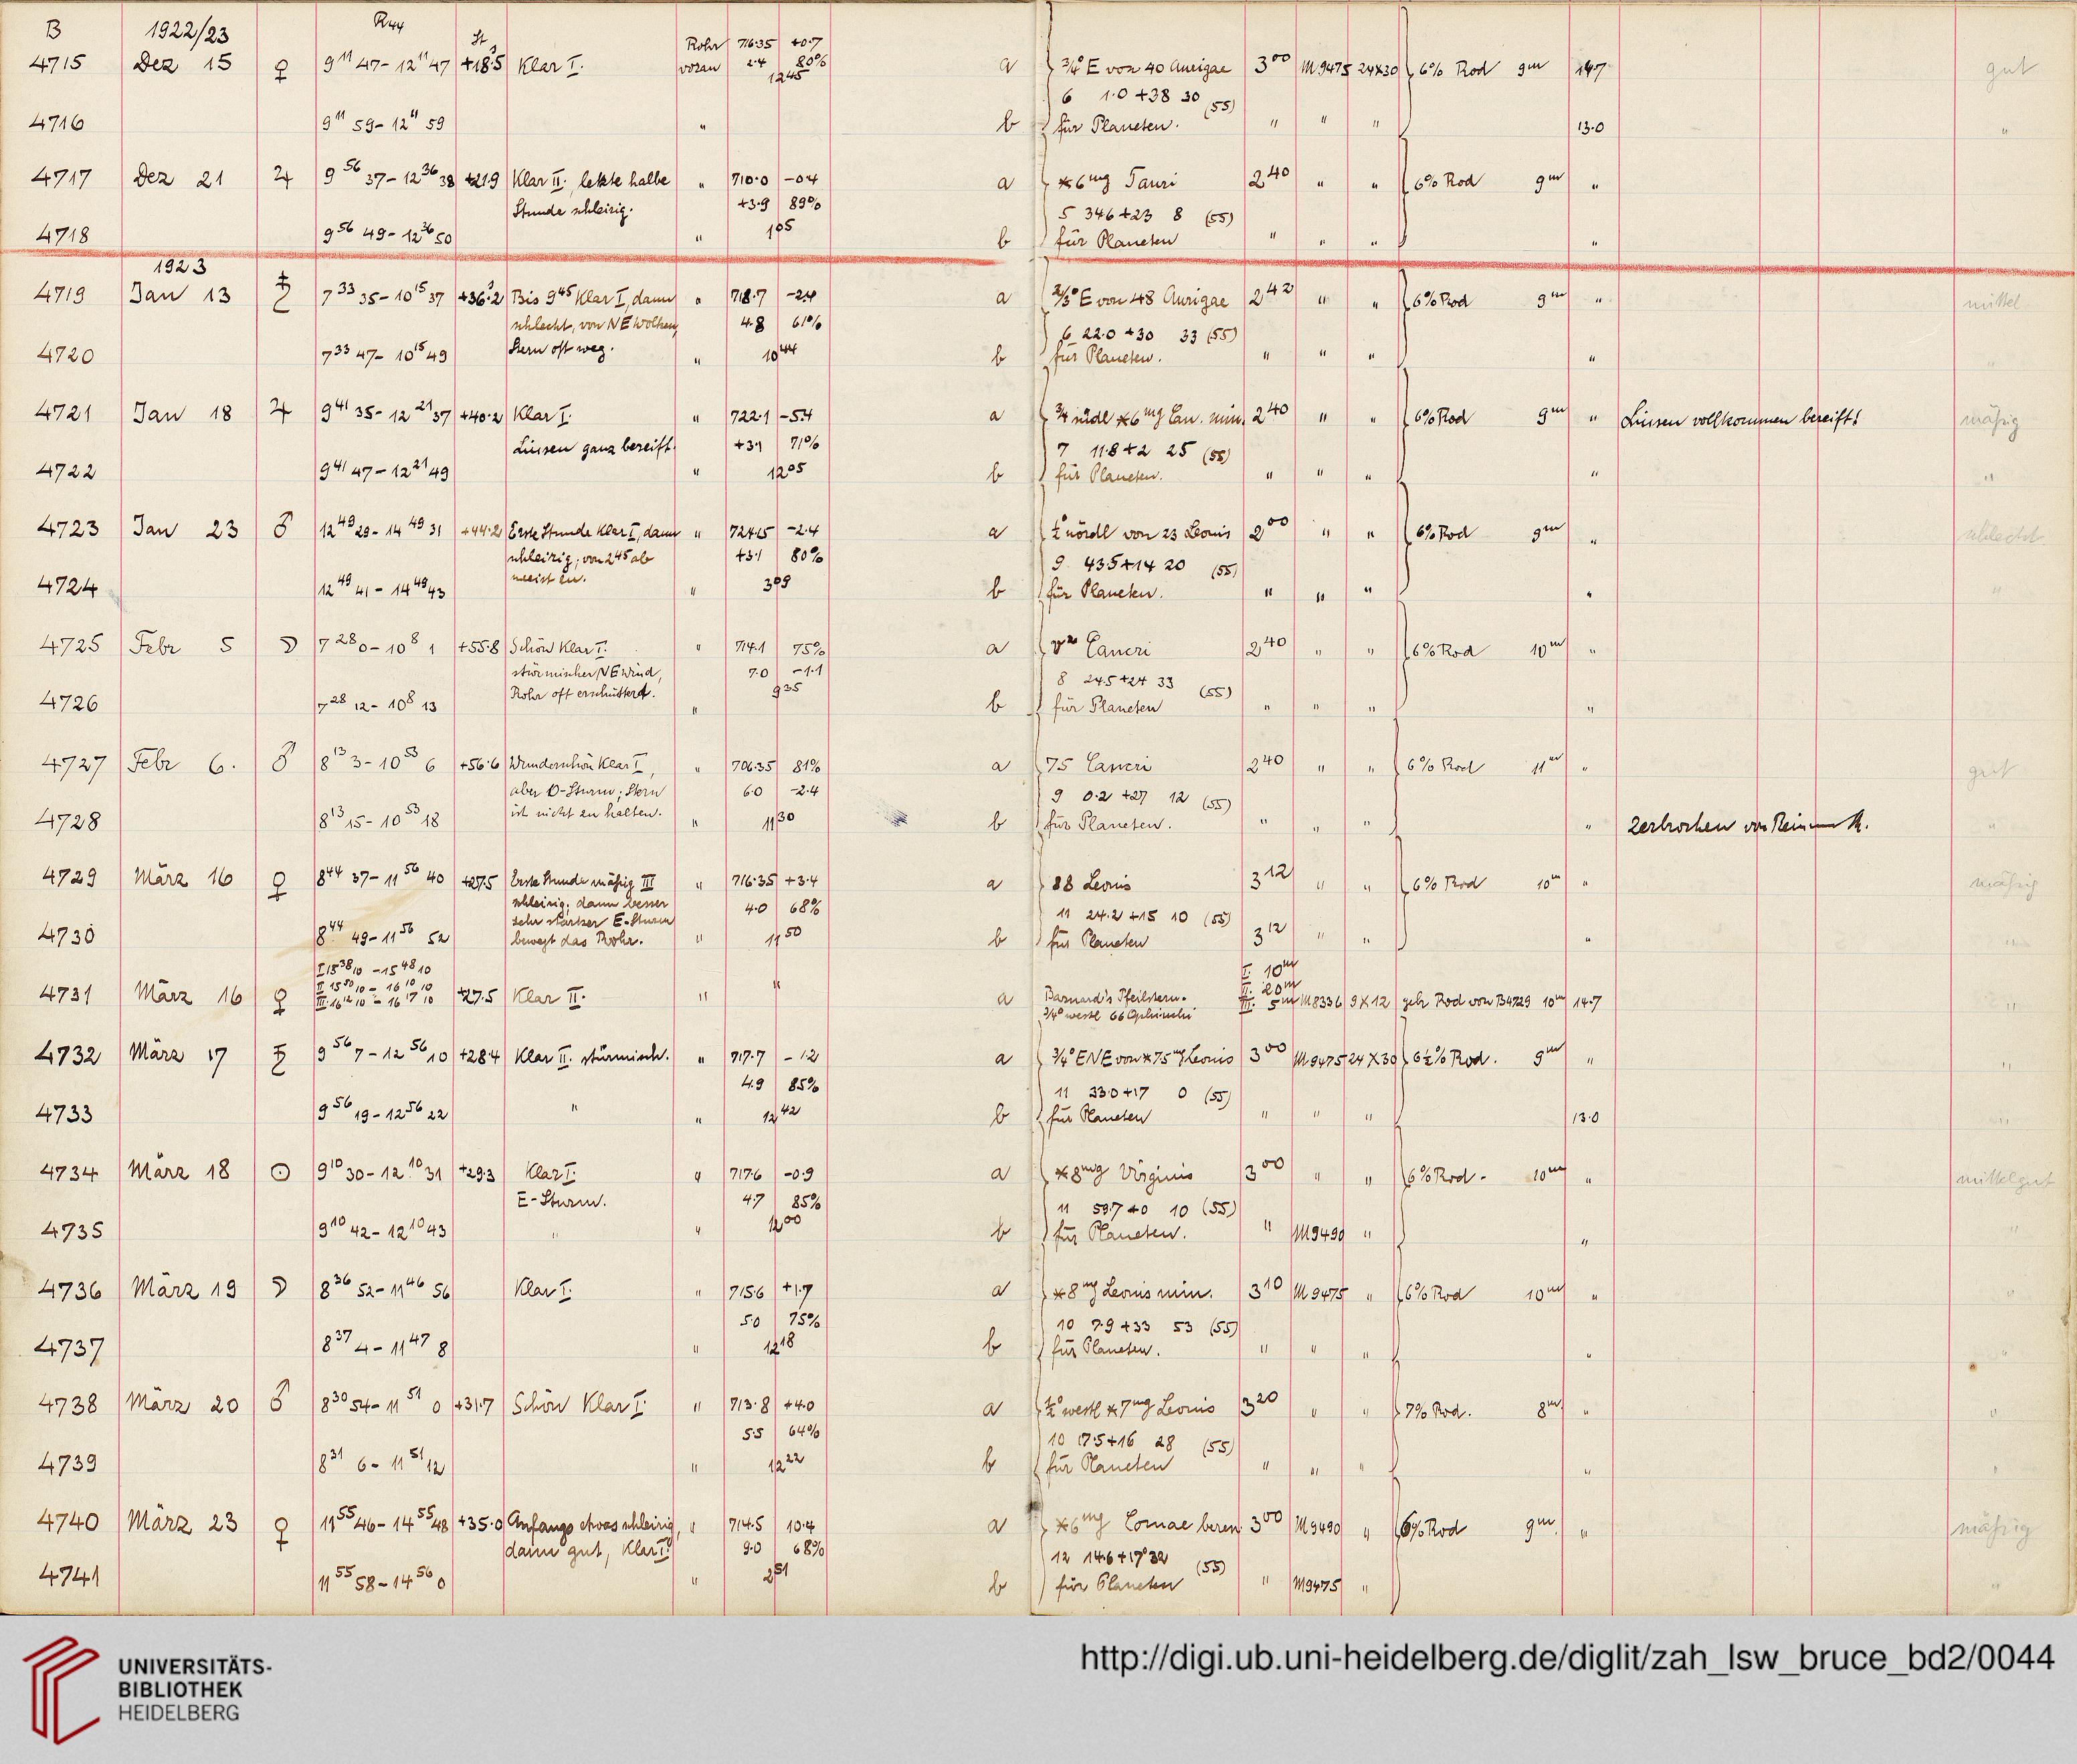 B 1922/23 R44 St
4715 Dez 15 ♀ 9 11 47 - 12 11 47 +18.5 Klar I. Rohr voran 716.35 +0.7 a 3/4° E von 40 Aurigae 3 00 M9475 24x30 6% Rod 9m 14.7 gut
2.4 80%
12 45
6 1.0 +38 30 (55)
4716 9 11 59 - 12 11 59 " b für Planeten. " " " 13.0 "
4717 Dez 21 ♃ 9 56 37 - 12 36 38 +21.9 Klar II. letzte halbe " 710.0 -0.4 a *6mg Tauri 2 40 " " 6% Rod 9m "
Stunde schleirig. +3.9 89%
5 34.6 +23 8 (55)
4718 9 56 49 - 12 36 50 " 1 05 b für Planeten " " " "
1923
4719 Jan 13 ♄ 7 33 35 - 10 15 37 +36.2 Bis 9 45 Klar I, dann " 718.7 -2.4 a 2/3° E von 48 Aurigae 2 42 " " 6% Rod 9m " mittel
schlecht, von NE Wolken, 4.8 61%
6 22.0 +30 33 (55)
4720 7 33 47 - 10 15 49 Stern oft weg. " 10 44 b für Planeten. " " " " "
4721 Jan 18 ♃ 9 41 35 - 12 21 37 +40.2 Klar I. " 722.1 -5.4 a 3/4 südl *6mg Can. min. 2 40 " " 6% Rod 9m " Linsen vollkommen bereift! mäßig
Linsen ganz bereift. +3.1 71%
7 11.8 +2 25 (55)
4722 9 41 47 - 12 21 49 " 12 05 b für Planeten. " " " " "
4723 Jan 23 ♂ 12 49 29 - 14 49 31 +44.2 Erste Stunde Klar I, dann " 724.15 -2.4 a 1/2° nördl von 23 Leonis 2 00 " " 6% Rod 9m " schlecht
schleirig, von 2 45 ab +3.1 80%
meist zu.
9 43.5 +14 20 (55)
4724 12 49 41 - 14 49 43 " 3 09 b für Planeten. " " " " "
4725 Febr 5 ☽ 7 28 0 - 10 8 1 +55.8 Schön Klar I. " 714.1 75% a υ2 Cancri 2 40 " " 6% Rod 10m "
stürmischer NE Wind, 7.0 -1.1
8 24.5 +24 33 (55)
4726 7 28 12 - 10 8 13 Rohr oft erschüttert. " 9 35 b für Planeten " " " "
4727 Febr 6. ♂ 8 13 3 - 10 53 6 +56.6 Wunderschön Klar I, " 706.35 81% a 75 Cancri 2 40 " " 6% Rod 11m " gut
aber O-Sturm; Stern 6.0 -2.4
9 0.2 +27 12 (55)
4728 8 13 15 - 10 53 18 ist nicht zu halten. " 11 30 b für Planeten. " " " " Zerbrochen von "
4729 März 16 ♀ 8 44 37 - 11 56 40 +27.5 Erste Stunde mäßig III " 716.35 +3.4 a 88 Leonis 3 12 " " 6% Rod 10m " mäßig
schleirig; dann besser 4.0 68%
sehr starker E-Sturm
11 24.2 +15 10 (55)
4730 8 44 49 - 11 56 52 bewegt das Rohr. " 11 50 b für Planeten 3 12 " " " "
I 15 38 10 - 15 48 10 I. 10m
II 15 50 10 - 16 10 10 II. 20m
4731 März 16 ♀ III. 16 12 10 - 16 17 10 +27.5 Klar II. " " a Barnard's Pfeilstern. III. 5m M8336 9x12 gebr Rod von B4729 10m 14.7 "
3/4° westl 66 Ophiuchi
4732 März 17 ♄ 9 56 7 - 12 56 10 +28.4 Klar II. stürmisch. " 717.7 -1.2 a 3/4° ENE von *75mg Leonis 3 00 M9475 24x30 6 1/2% Rod. 9m " "
4.9 85%
11 33.0 +17 0 (55)
4733 9 56 19 - 12 56 22 " " 12 42 b für Planeten " " " 13.0 "
4734 März 18 ☉ 9 10 30 - 12 10 31 +29.3 Klar I. " 717.6 -0.9 a *8mg Virginis 3 00 " " 6% Rod - 10m " mittelgut
E-Sturm. 4.7 85%
11 59.7 +0 10 (55)
4735 9 10 42 - 12 10 43 " " 12 00 b für Planeten. " M9490 " " "
4736 März 19 ☽ 8 36 52 - 11 46 56 Klar I. " 715.6 +1.7 a *8mg Leonis min. 3 10 M9475 " 6% Rod 10m " "
5.0 75%
10 7.9 +33 53 (55)
4737 8 37 4 - 11 47 8 " 12 18 b für Planeten. " " " " "
4738 März 20 ♂ 8 30 54 - 11 51 0 +31.7 Schön Klar I. " 713.8 +4.0 a 1/2° westl *7mg Leonis 3 20 " " 7% Rod. 8m " "
5.5 64%
10 17.5 +16 28 (55)
4739 8 31 6 - 11 51 12 " 12 22 b für Planeten " " " " "
4740 März 23 ♀ 11 55 46 - 14 55 48 +35.0 Anfangs etwas schleirig, " 714.5 10.4 a *6mg Comae beren 3 00 M9490 " 6% Rod 9m. " mäßig
dann gut, Klar I. 9.0 68%
12 14.6 +17° 32 (55)
4741 11 55 58 - 14 56 0 " 2 51 b für Planeten " M9475 " "
UNIVERSITÄTS-
BIBLIOTHEK
HEIDELBERG
http://digi.ub.uni-heidelberg.de/diglit/zah_lsw_bruce_bd2/0044